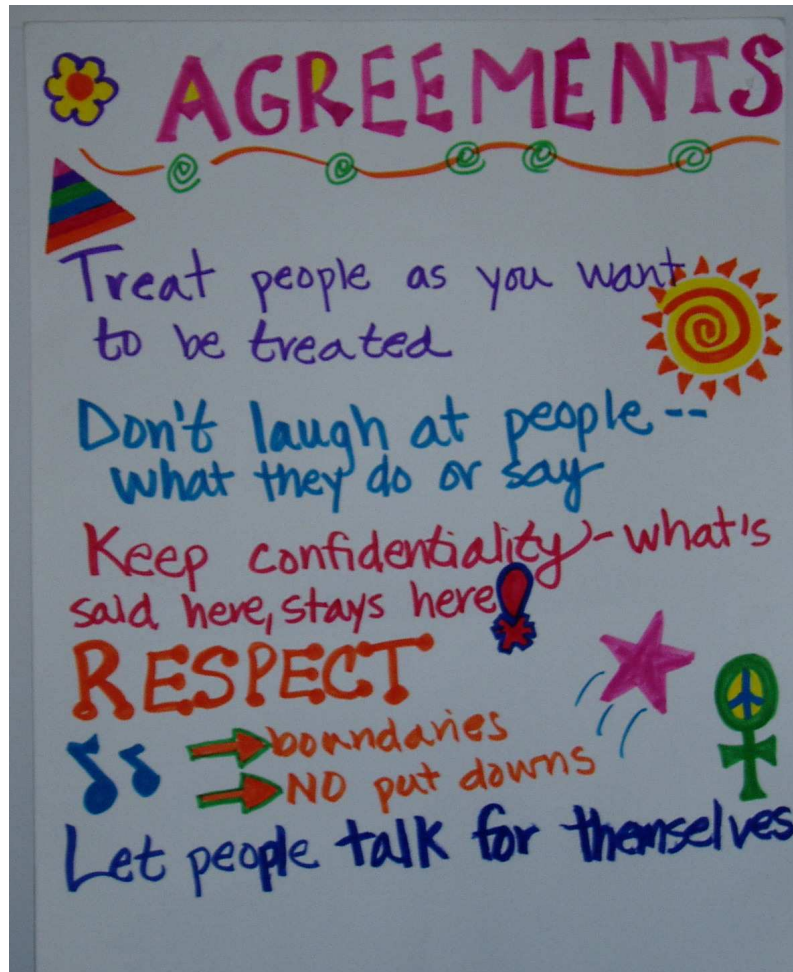 AGREEMENTS
Treat people as you want
to be treated
Don't laugh at people --
what they do or say
Keep confidentiality - what's
said here, stays here!
RESPECT
boundaries
NO put downs
Let people talk for themselves